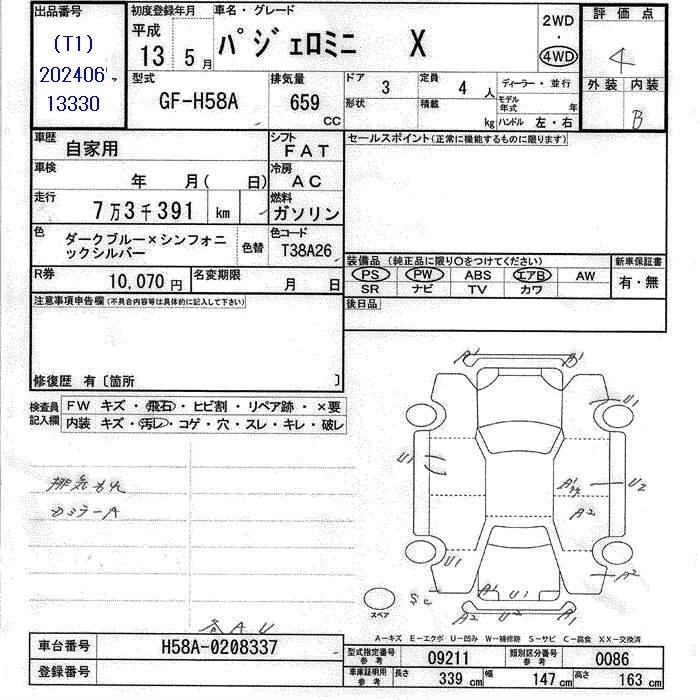 出品番号
(T1)
202406
13330
初度登録年月
平成
13 5月
車名・グレード
パジェロミニ X
2WD
・
4WD
評価点
4
外装 内装
B
型式
GF-H58A
排気量
659
CC
ドア 3
形状
定員 4 人
積載 kg
ディーラー・並行
モデル年式 年
ハンドル 左・右
車歴 自家用
シフト FAT
車検 年 月( 日)
冷房 AC
走行 7万3千391 km
燃料 ガソリン
色 ダークブルー×シンフォニックシルバー
色替
色コード T38A26
R券 10,070円
名変期限 月 日
セールスポイント(正常に機能するものに限ります)
装備品(純正品に限り○をつけてください)
PS PW ABS エアB AW
SR ナビ TV カワ
新車保証書
有・無
後日品
注意事項申告欄(不具合内容等は具体的に記入して下さい)
修復歴 有〔箇所 〕
検査員記入欄
FW キズ・飛石・ヒビ割・リペア跡・×要
内装 キズ・汚レ・コゲ・穴・スレ・キレ・破レ
排気もれ
カミラーA
各AU
A1 A1
U1
U1
A1
U2
A2
U1
A2
A1 U1
A2 U2 A1
スペア
A-キズ E-エクボ U-凹み W-補修跡 S-サビ C-腐食 XX-交換済
車台番号 H58A-0208337
登録番号
型式指定番号 参考 09211
類別区分番号 参考 0086
車庫証明用 参考 長さ 339 cm 幅 147 cm 高さ 163 cm